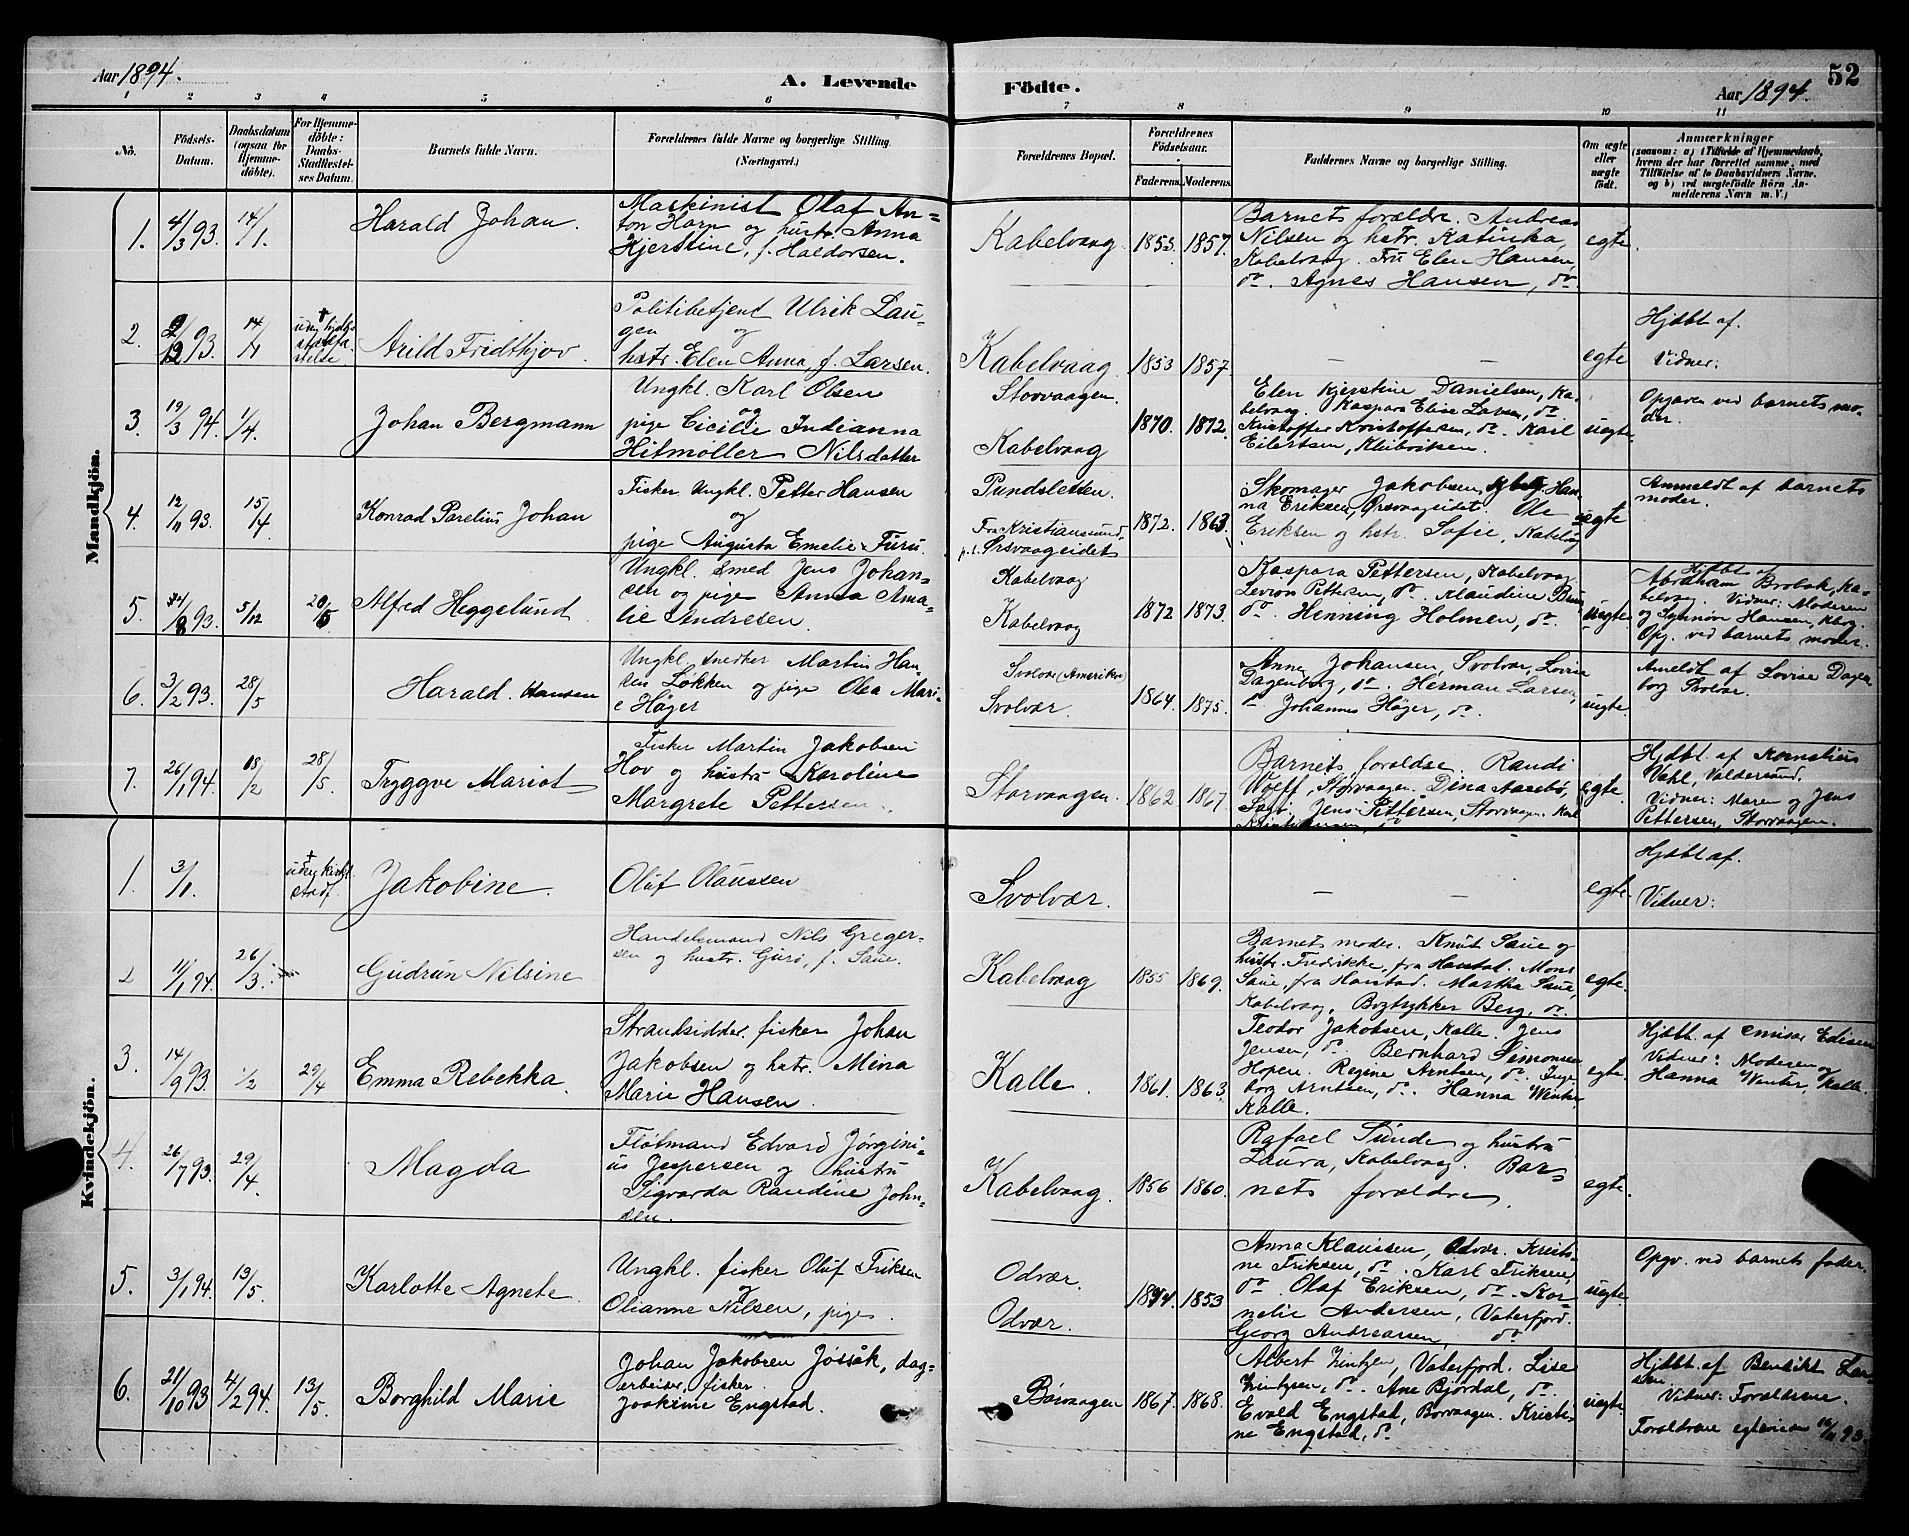 Aar 1894.
A. Levende
Födte.
Aar 1894.
52
1 2 3 4 5 6 7 8 9 10 11
No.
Födsels-
Datum.
Daabsdatum
(ogsaa for
Hjemme-
döbte).
For Hjemme-
döbte:
Daabs-
Stadfæstel-
ses Datum.
Barnets fulde Navn.
Forældrenes fulde Navne og borgerlige Stilling.
(Næringsvei.)
Forældrenes Bopæl.
Forældrenes
Födselsaar.
Faderens. Moderens.
Faddernes Navne og borgerlige Stilling.
Om ægte
eller
uægte
födt.
Anmærkninger
(saasom: a) i Tilfælde af Hjemmedaab,
hvem der har forrettet samme, med
Tilföielse af to Daabsvidners Navne,
og b) ved uægtefödte Börn An-
melderens Navn m. V.)
Mandkjön.
1. 4/3 93. 14/1. Harald Johan.
Maskinist Olaf An-
ton Harp og hustr. Anna
Kjerstine, f. Haldorsen.
Kabelvaag. 1853. 1857.
Barnets forældre. Andreas
Nilsen og hstr. Katinka,
Kabelvaag. Fru Elen Hansen,
do. Agnes Hansen, do
egte.
2. 2/12 93. 14/ Arild Fridthjov.
Politibetjent Ulrik Lau-
gen og
hstr. Elen Anna, f. Larsen.
Kabelvaag 1853 1857.
egte
Hjdbt af.
Vidner:
3. 19/3 94. 1/4. Johan Bergmann
Ungkl. Karl Olsen
og
pige Cicilie Indianna
Hitmöller Nilsdatter
Storvaagen.
Kabelvaag
1870. 1872.
Elen Kjerstine Danielsen, Ka-
belvaag. Kaspara Elise Larsen, do.
Kristoffer Kristoffersen, do. Karl
Eilertsen,
uegte.
Opgaven ved barnets mo-
der.
4. 12/11 93. 15/4 Konrad Parelius Johan
Fisker Ungkl. Petter Hansen
og
pige Augusta Emelie Furu.
Pundsletten.
Fra Kristianssund,
p.t. Örsvaageidet
1872. 1863.
Skomager Jakobsen, Han-
na Eriksen, Örsvaageidet. Ole
Eriksen og hstr. Sofie, Kabelvåg
uegte
Anmeldt af barnets
moder.
5. 24/8 93. 5/12 20/5 Alfred Heggelund
Ungkl. smed Jens Johan-
sen og pige Anna Ama-
lie Andresen.
Kabelvaag
Kabelvaag
1872 1873.
Kaspara Pettersen, Kabelvaag
Pettersen, do. Klaudine
do. Henning Holmen, do.
uegte.
Hjdbt af
Abraham Brobak, Ka-
belvaag. Vidner: Moderen
og Synnöve Hansen, Kbvg.
Opg. ved barnets moder.
6. 3/2 93. 28/5 Harald. Hansen
Ungkl. snedker Martin Han-
sen Løkken og pige Olea Mari-
e Höger
Svolvær (Amerika)
Svolvær.
1864. 1875.
Anne Johansen, Svolvær, Lovise
Dagenborg, do. Herman Larsen,
do. Johannes Höger, do.
uegte.
Ameldt af Lovise Dagen-
borg Svolvær.
7. 26/1 94. 18/2 28/5. Tryggve Mariot
Fisker Martin Jakobsen
Hov og hustru Karoline
Margrete Pettersen.
Storvaagen. 1862 1867.
Barnets foraldre. Randi
Wolff, Storvaagen. Dina Aasebö,
Jens Pettersen, Storvaagen. Karl
Kristiansen, do
egte.
Hjdbt. af Kornelius
Vahl, Valdersund.
Vidner: Maren og Jens
Pettersen, Storvaagen.
Kvindekjön.
1. 3/1. Jakobine.
Oluf Olaussen
Svolvær.
egte.
Hjdbt af.
Vidner:
2 11/1 94. 26/3. Gudrun Nilsine
Handelsmand Nils Greger-
sen og hustr. Guro, f. Saue.
Kabelvaag 1855 1869.
Barnets moder. Knut Saue og
hustr. Fredrikke, fra Harstad. Mons
Saue, fra Harstad. Martha Saue,
Kabelvaag, Bogtrykker Berg, do.
egte.
3. 14/9 93 1/2 29/4 Emma Rebekka.
Strandsidder, fisker Johan
Jakobsen og hstr. Mina
Marie Hansen.
Kalle. 1861. 1863.
Teodor Jakobsen, Kalle. Jens
Jensen, do. Bernhard Simonsen
Hopen. Regine Arntsen, do. Inge-
borg Arntsen, do. Hanna Winter,
Kalle.
egte.
Hjdbt. af Edisen
Vidner: Moderen og
Hanna Winter, Kalle.
4. 26/7 93. 29/4. Magda
Fløtmand Edvard Jørgini-
us Jespersen og hustru
Sigvarda Randine John-
sen.
Kabelvaag. 1856 1860.
Rafael Sunde og hustru
Laura, Kabelvaag. Bar-
nets forældre.
egte.
5. 3/1 94. 13/5. Karlotte Agnete.
Ungkl. fisker Oluf Eriksen
og
Olianne Nilsen, pige.
Odvær.
Odvær.
1853
Anna Klaussen, Odvær. Kristi-
ne Eriksen, do. Karl Eriksen,
do. Olaf Eriksen, do. Kor-
nelie Andersen, Vaterfjord.
Georg Andreassen, do
uegte.
Opgv. ved barnets fader.
6. 21/10 93 4/2 94. 13/5. Borghild Marie
Johan Jakobsen Jössåk, dag-
arbeider, fisker.
Joakime Engstad.
Börvaagen 1867. 1868.
Albert Zintzen, Vaterfjord. Lise
Zintzen, do. Ane Bjørdal, do.
Evald Engstad, Börvaagen. Kristi-
ne Engstad, do.
uegte.
Hjdbt. af Bendikt Lar-
sen.
Vidner: Forældrene.
Forældrene egteviede 16/11 93.